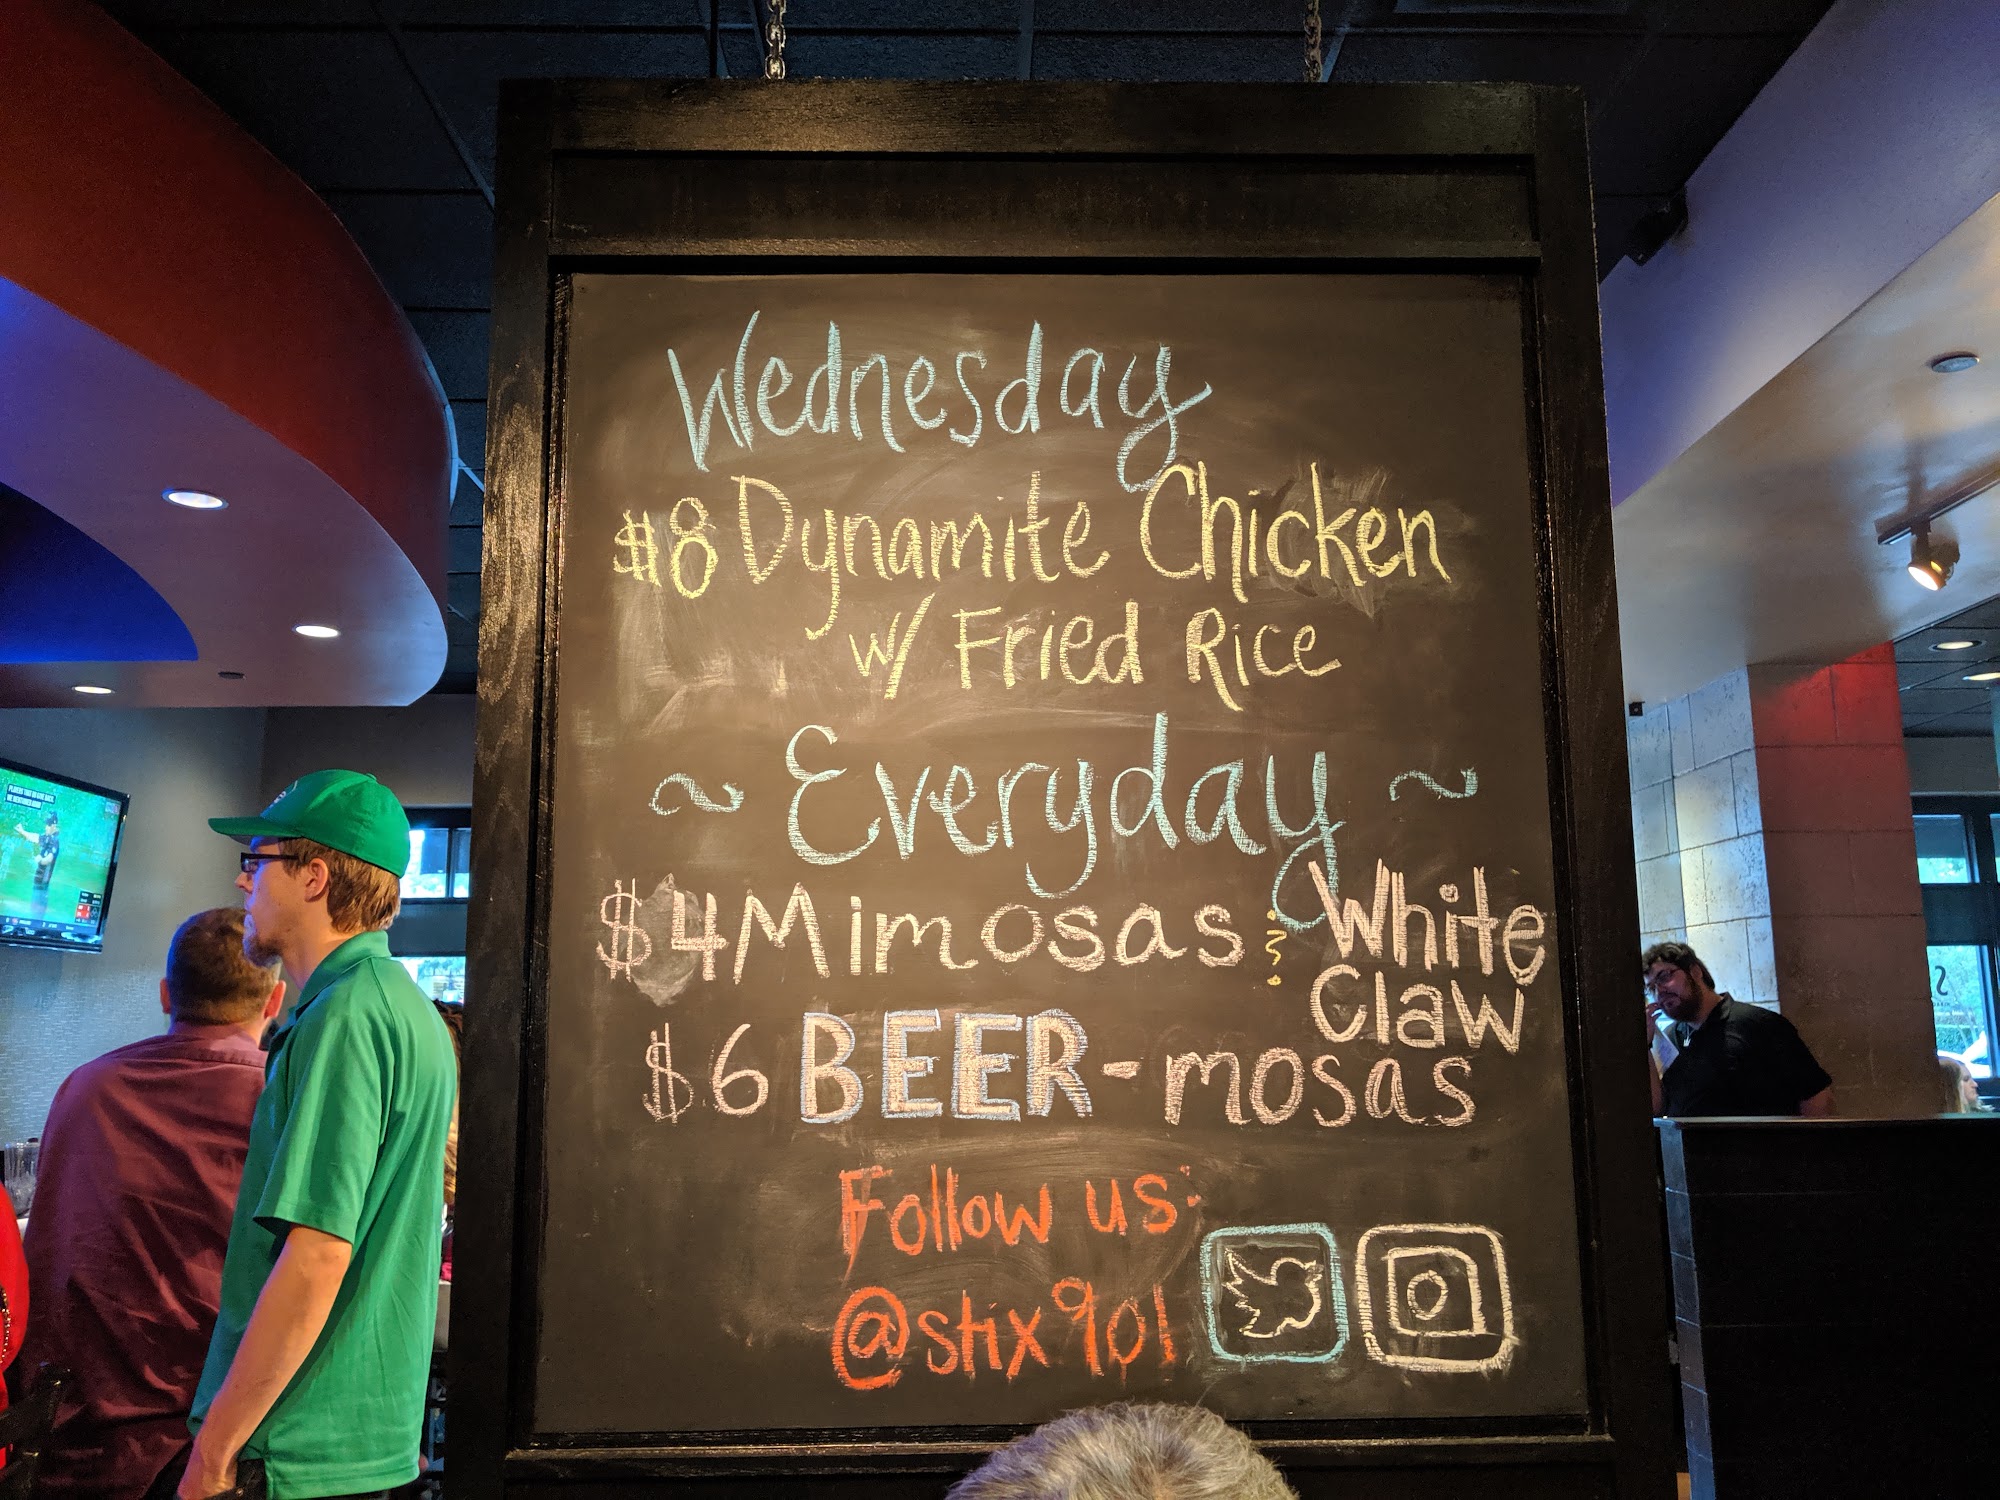 Wednesday
$8 Dynamite Chicken
w/ Fried Rice
~ Everyday ~
$4 Mimosas & White
Claw
$6 BEER-mosas
Follow us:
@stix901